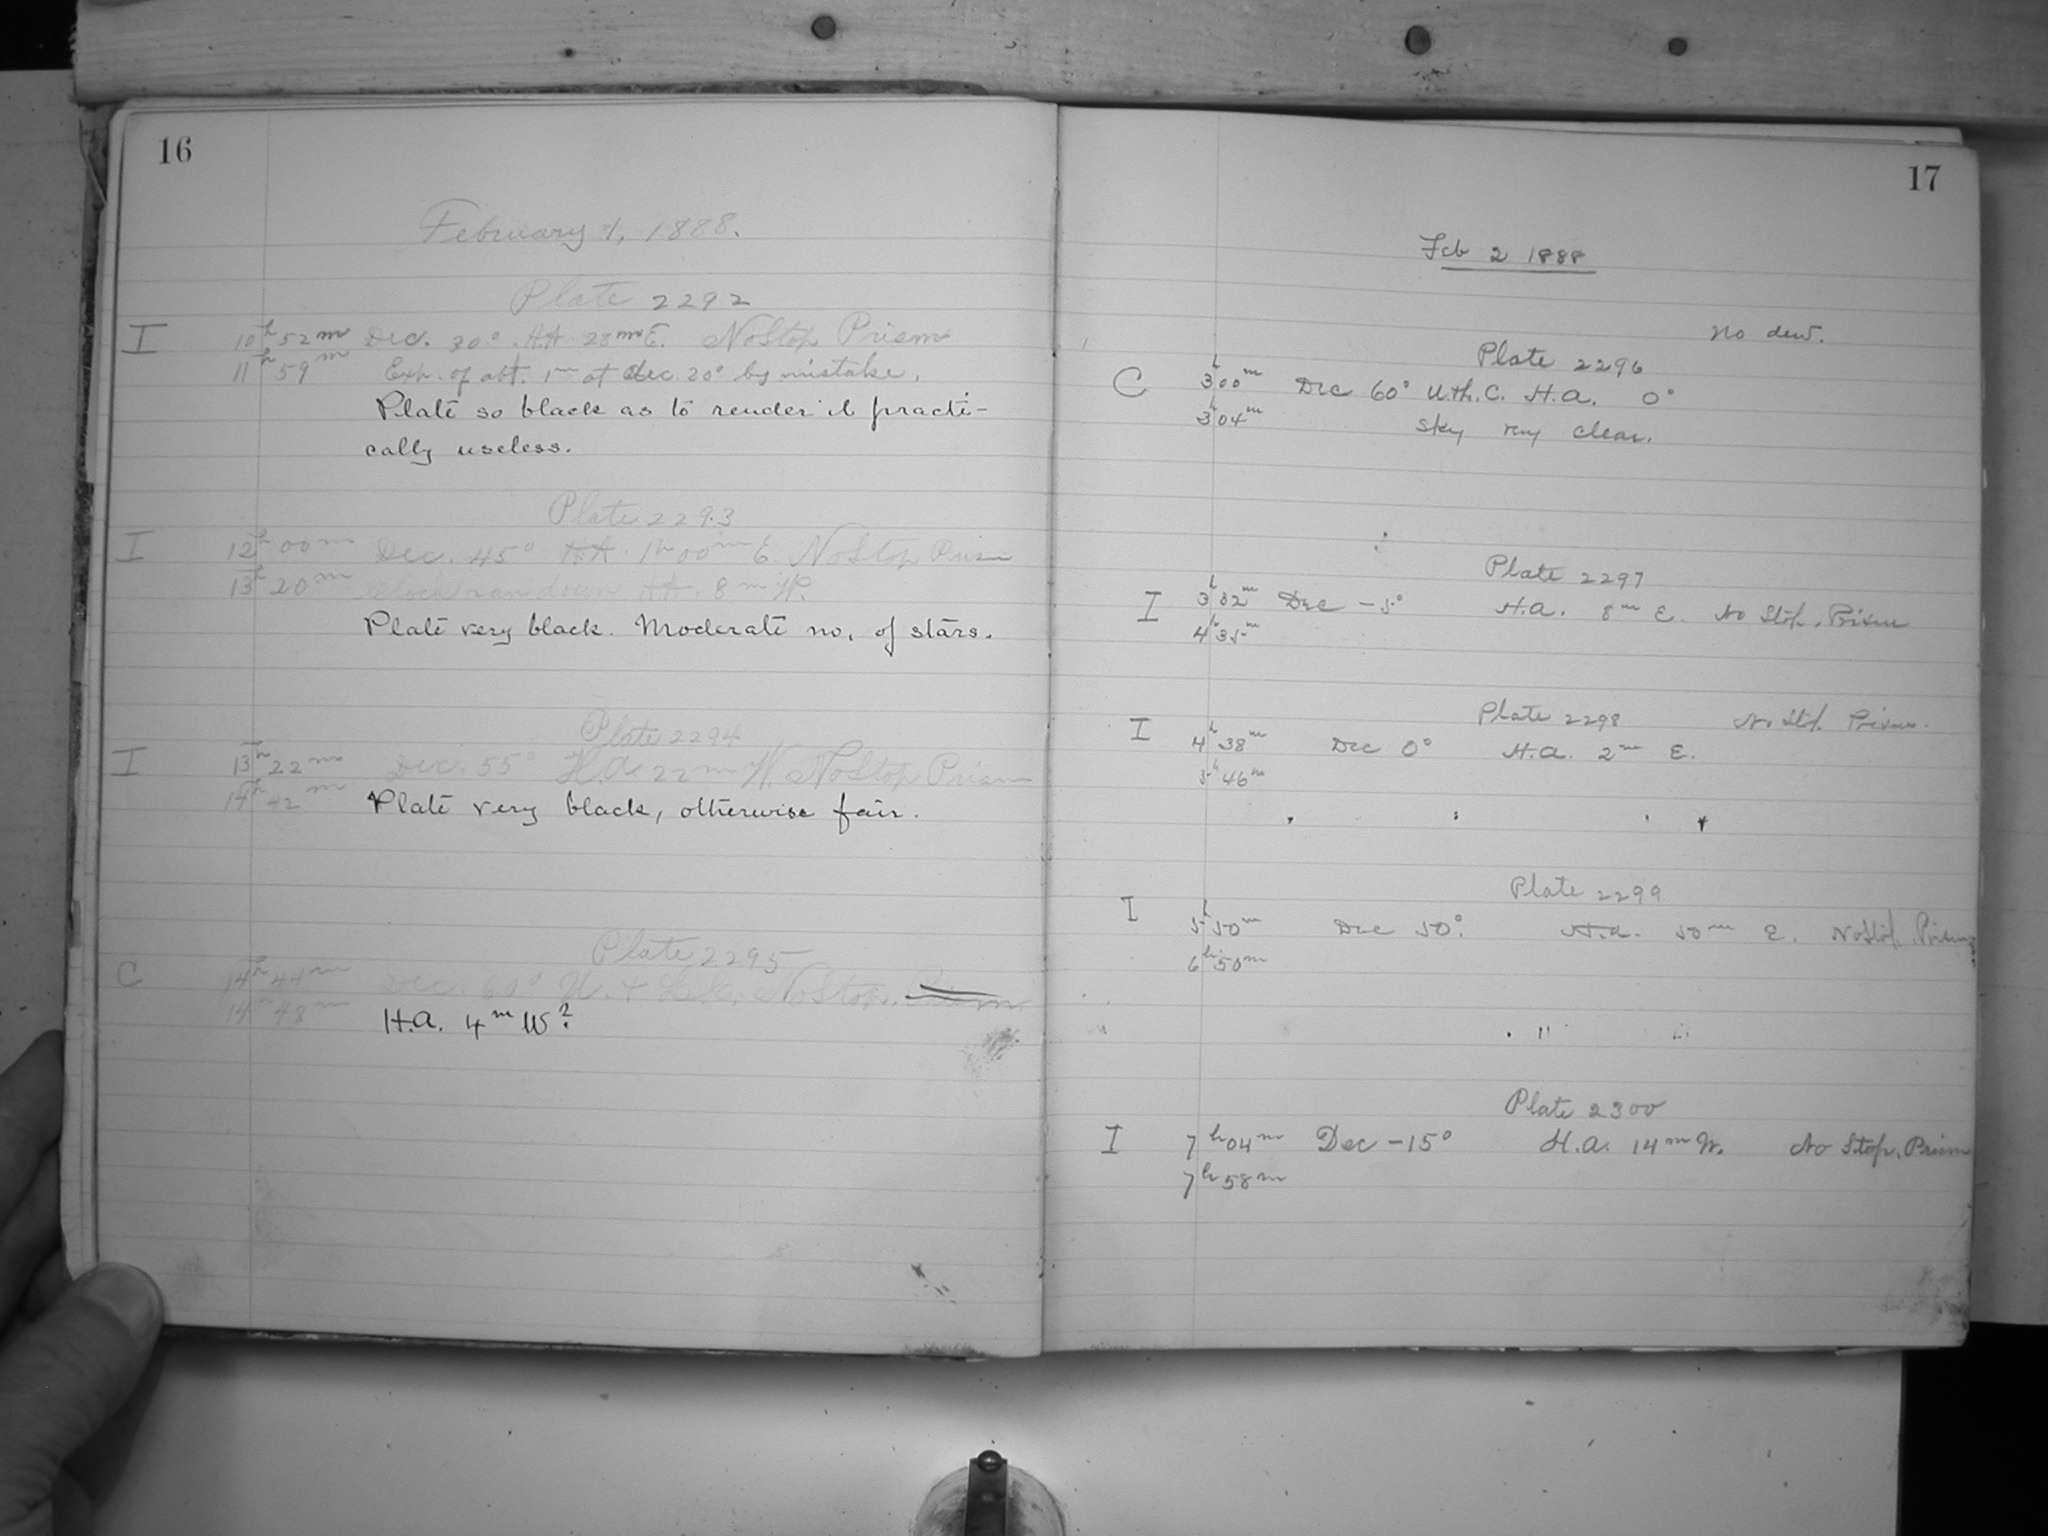 16
February 1, 1888.
Plate 2292
I 10h 52m Dec. 30° H.A. 28m E. No Stop Prism
11h 59m Exp. of abt. 1m at dec. 20° by mistake.
Plate so black as to render it practi-
cally useless.
Plate 2293
I 12h 00m Dec. 45° H.A. 1h 00m E. No Stop Prism
13h 20m Clock ran down H.A. 8m W.
Plate very black. Moderate no. of stars.
Plate 2294
I 13h 22m Dec. 55° H.A. 22m W. No Stop Prism
14h 42m Plate very black, otherwise fair.
Plate 2295
C 14h 44m Dec. 60° U. + L.C. No Stop. Prism
14h 48m H.A. 4m W?
17
Feb 2 1888
No dew.
Plate 2296
C 3h 00m Dec 60° H.A. 0°
3h 04m Sky very clear.
Plate 2297
I 3h 32m Dec -5° H.A. 8m E. No Stop, Prism
4h 35m
Plate 2298 No Stop. Prism.
I 4h 38m Dec 0° H.A. 2m E.
5h 46m
Plate 2299
I 5h 50m Dec 50° H.A. 50m E. No Stop, Prism
6h 50m
Plate 2300
I 7h 04m Dec -15° H.A. 14m W. No Stop, Prism
7h 58m